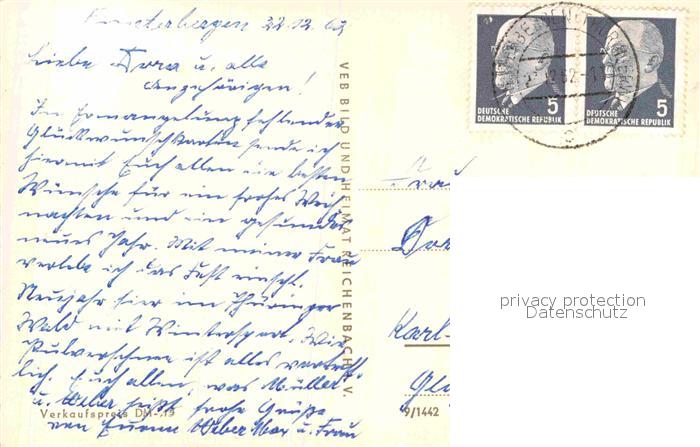 Finsterbergen 22.12.62
Liebe Dora u. alle
Angehörigen!
In Ermangelung fehlender
Glückwunschkarten sende ich
hiermit Euch allen die besten
Wünsche für ein frohes Weih
nachten und ein gesundes
neues Jahr. Mit meiner Frau
verlebe ich das Fest einschl.
Neujahr hier im Thüringer
Wald mit Wintersport. Wie
Pulverschnee ist alles
lich. Euch allen, was Müller
u. Weber heißt frohe Grüße
von Weber Max u. Frau
VEB BILD UND HEIMAT REICHENBACH I. V.
Verkaufspreis DM -,15
9/1442
5
DEUTSCHE
DEMOKRATISCHE REPUBLIK
5
DEUTSCHE
DEMOKRATISCHE REPUBLIK
Frau
Dor
Karl-
privacy protection
Datenschutz